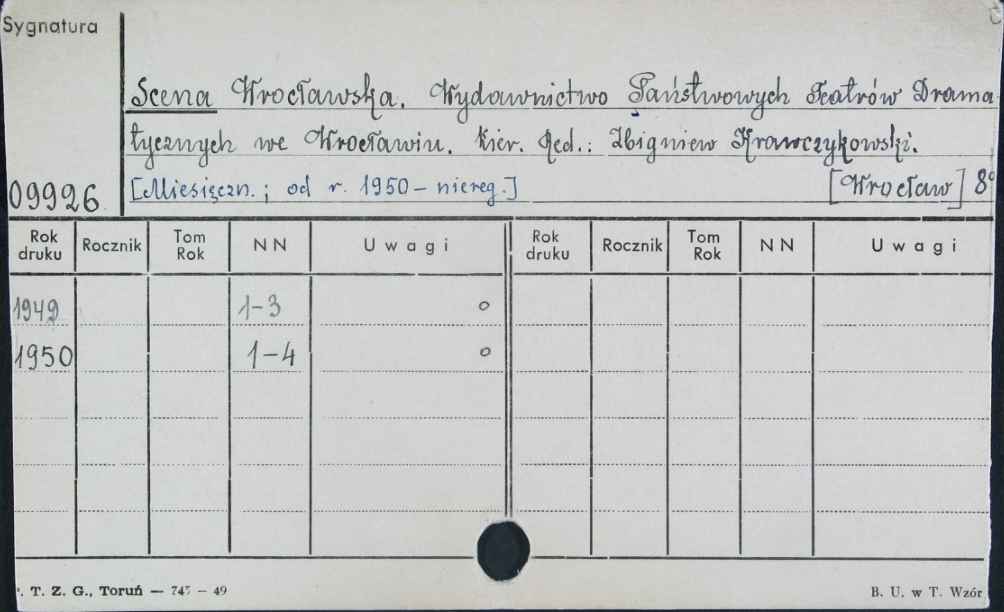 Sygnatura
Scena Wrocławska. Wydawnictwo Państwowych Teatrów Drama
tycznych we Wrocławiu. Kier. Red.: Zbigniew Krawczykowski.
09926 [Miesięczn.; od r. 1950 – niereg.] [Wrocław] 8°
Rok druku Rocznik Tom Rok NN Uwagi Rok druku Rocznik Tom Rok NN Uwagi
1949 1-3 o
1950 1-4 o
T. Z. G., Toruń — 745 – 49 B. U. w T. Wzór